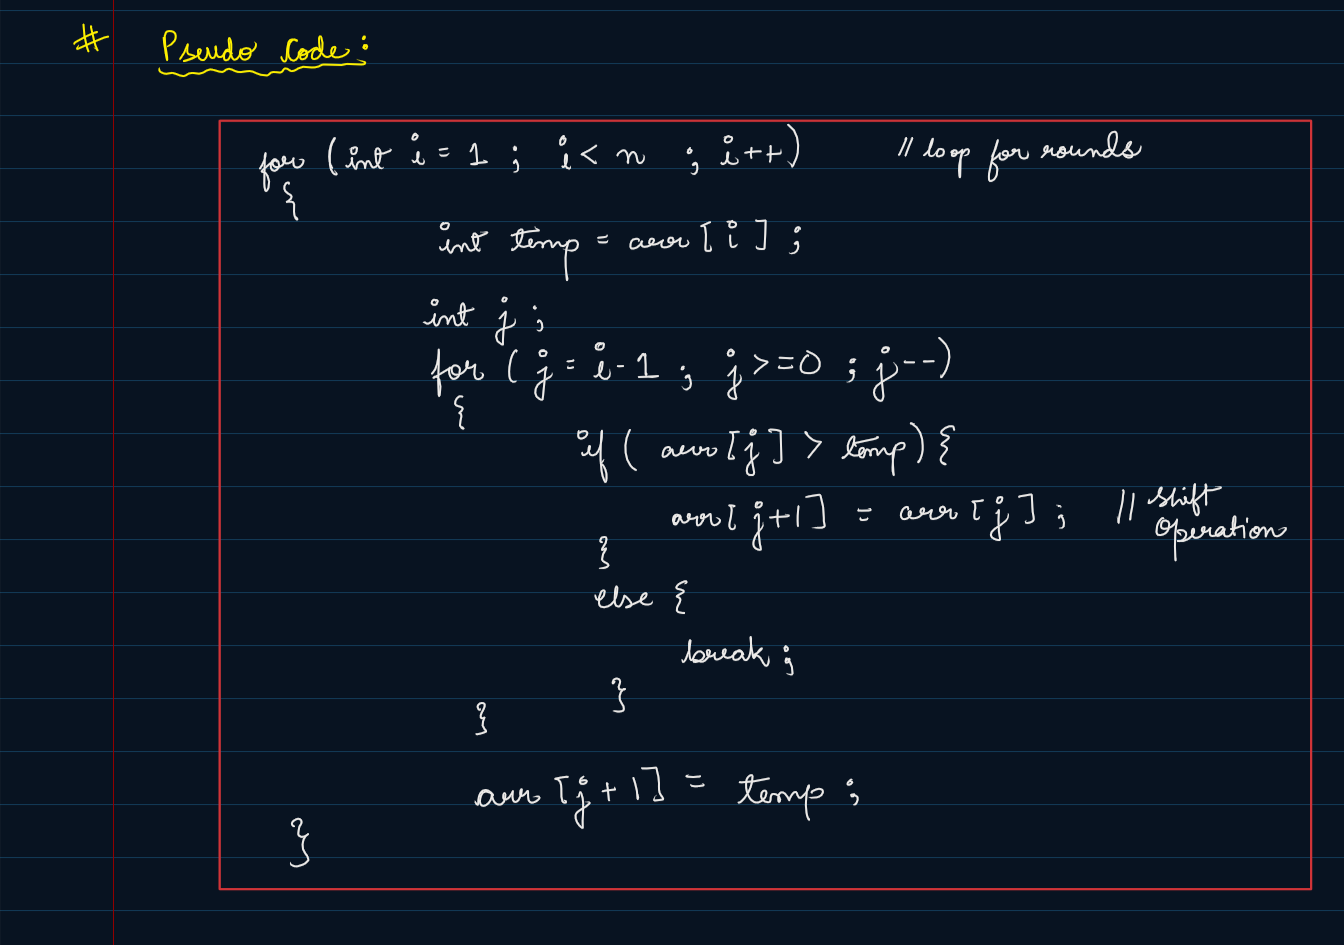 # Pseudo Code:
for (int i = 1 ; i < n ; i++) // loop for rounds
{
int temp = arr [ i ] ;
int j ;
for ( j = i - 1 ; j >= 0 ; j--)
{
if ( arr [ j ] > temp ) {
arr [ j+1 ] = arr [ j ] ; // shift
operation
}
else {
break ;
}
}
arr [ j + 1 ] = temp ;
}